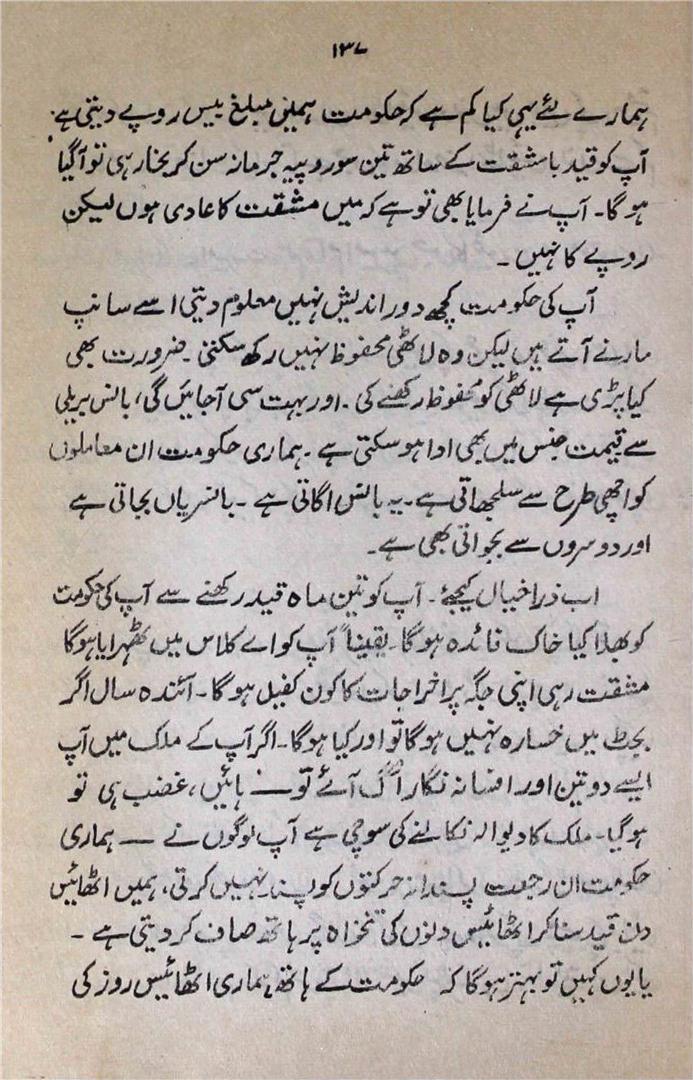 ۱۳۷
ہمارے لئے یہی کیا کم ہے کہ حکومت ہمیں مبلغ بیس روپے دیتی ہے
آپ کو قید بامشقت کے ساتھ تین سو روپیہ جرمانہ سن کر بخار ہی تو آ گیا
ہو گا۔ آپ نے فرمایا بھی تو ہے کہ میں مشقت کا عادی ہوں لیکن
روپے کا نہیں ۔
آپ کی حکومت کچھ دور اندیش نہیں معلوم دیتی اسے سانپ
مارنے آتے ہیں لیکن وہ لاٹھی محفوظ نہیں رکھ سکتی ۔ ضرورت بھی
کیا پڑی ہے لاٹھی کو محفوظ رکھنے کی ۔ اور بہت سی آجائیں گی، بانس بریلی
سے قیمت جنس میں بھی ادا ہو سکتی ہے ۔ ہماری حکومت ان معاملوں
کو اچھی طرح سے سلجھاتی ہے ۔ یہ بانس اگاتی ہے ۔ بانسریاں بجاتی ہے
اور دوسروں سے بجواتی بھی ہے ۔
اب ذرا خیال کیجئے ۔ آپ کو تین ماہ قید رکھنے سے آپ کی حکومت
کو بھلا کیا خاک فائدہ ہو گا ۔ یقیناً آپ کو اے کلاس میں ٹھہرایا ہو گا
مشقت رہی اپنی جگہ پر اخراجات کا کون کفیل ہو گا ۔ آئندہ سال اگر
بجٹ میں خسارہ نہیں ہو گا تو اور کیا ہو گا ۔ اگر آپ کے ملک میں آپ
ایسے دو تین اور افسانہ نگار اُگ آئے تو ـــ ہائیں، غضب ہی تو
ہو گیا ۔ ملک کا دیوالہ نکالنے کی سوچی ہے آپ لوگوں نے ـــ ہماری
حکومت ان رجعت پسندانہ حرکتوں کو پسند نہیں کرتی، ہمیں اٹھائیس
دن قید سنا کر اٹھائیس دنوں کی تنخواہ پر ہاتھ صاف کر دیتی ہے ۔
یا یوں کہیں تو بہتر ہو گا کہ حکومت کے ہاتھ ہماری اٹھائیس روز کی